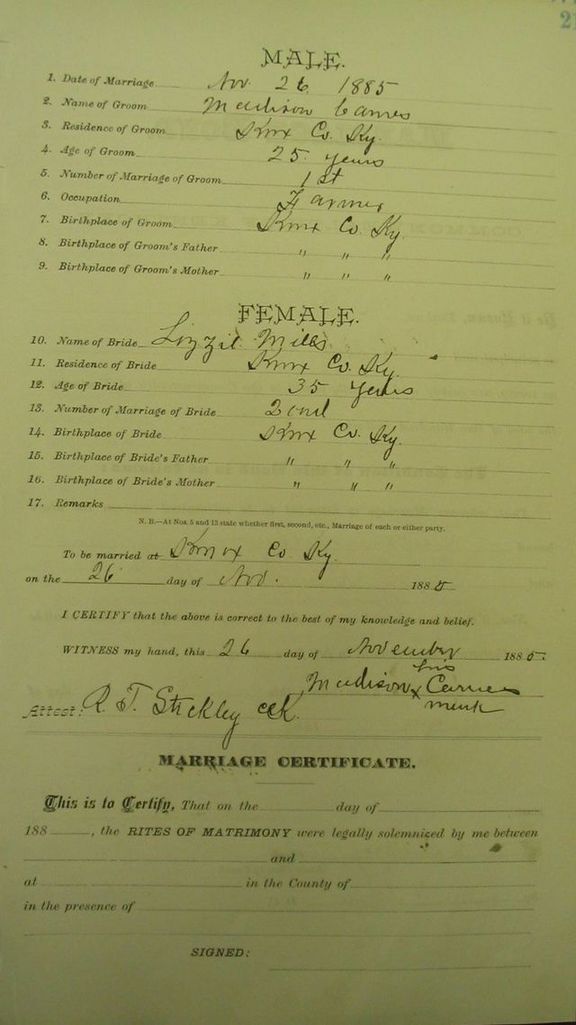 2
MALE.
1. Date of Marriage Nov. 26 1885
2. Name of Groom Madison Carnes
3. Residence of Groom Knox Co. Ky.
4. Age of Groom 25 years
5. Number of Marriage of Groom 1st
6. Occupation Farmer
7. Birthplace of Groom Knox Co. Ky.
8. Birthplace of Groom's Father " " "
9. Birthplace of Groom's Mother " " "
FEMALE.
10. Name of Bride Lizzie Mills
11. Residence of Bride Knox Co. Ky.
12. Age of Bride 35 years
13. Number of Marriage of Bride 2ond
14. Birthplace of Bride Knox Co. Ky.
15. Birthplace of Bride's Father " " "
16. Birthplace of Bride's Mother " " "
17. Remarks
N. B.—At Nos. 5 and 13 state whether first, second, etc., Marriage of each or either party.
To be married at Knox Co Ky.
on the 26 day of Nov. 1885
I CERTIFY that the above is correct to the best of my knowledge and belief.
WITNESS my hand, this 26 day of November 1885.
his
Madison x Carnes
mark
Attest: R. T. Stickley clk.
MARRIAGE CERTIFICATE.
This is to Certify, That on the day of
188 , the RITES OF MATRIMONY were legally solemnized by me between
and
at in the County of
in the presence of
SIGNED: